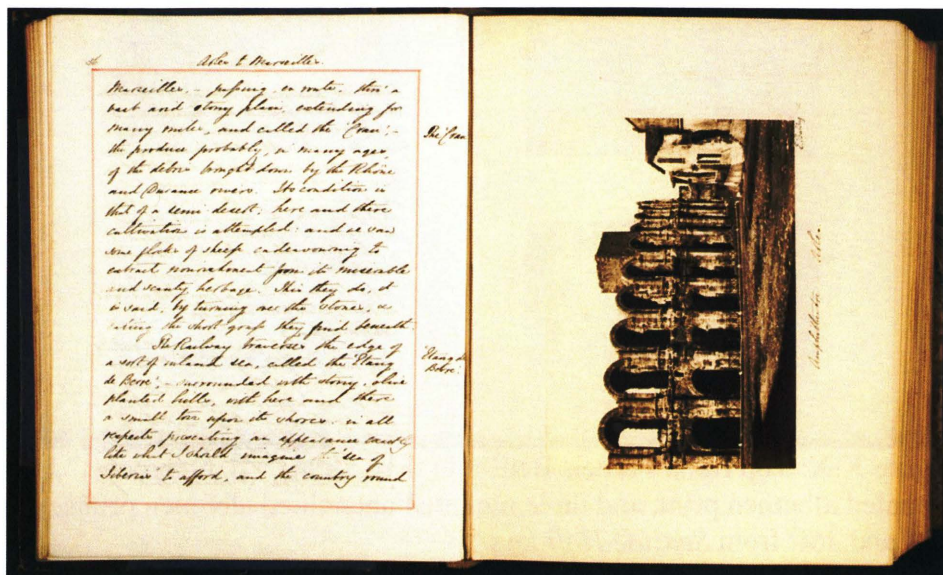 Arles to Marseilles.
Marseilles, - passing, en route, thro' a
vast and stony plain, extending for
many miles, and called the 'Crau', -
the produce probably, in many ages,
of the debris brought down by the Rhône
and Durance rivers. Its condition is
that of a semi desert; here and there
cultivation is attempted; and we saw
some flocks of sheep endeavouring to
extract nourishment from its miserable
and scanty herbage. This they do, it
is said, by turning over the stones, &
eating the short grass they find beneath.
The Railway traverses the edge of
a sort of inland sea, called the 'Etang
de Berre', - surrounded with stony, olive
planted hills, with here and there
a small town upon its shores. in all
respects presenting an appearance exactly
like what I should imagine the 'sea of
Tiberias' to afford, and the country round
The 'Crau'
'Etang de
Berre'.
Amphitheatre Arles.